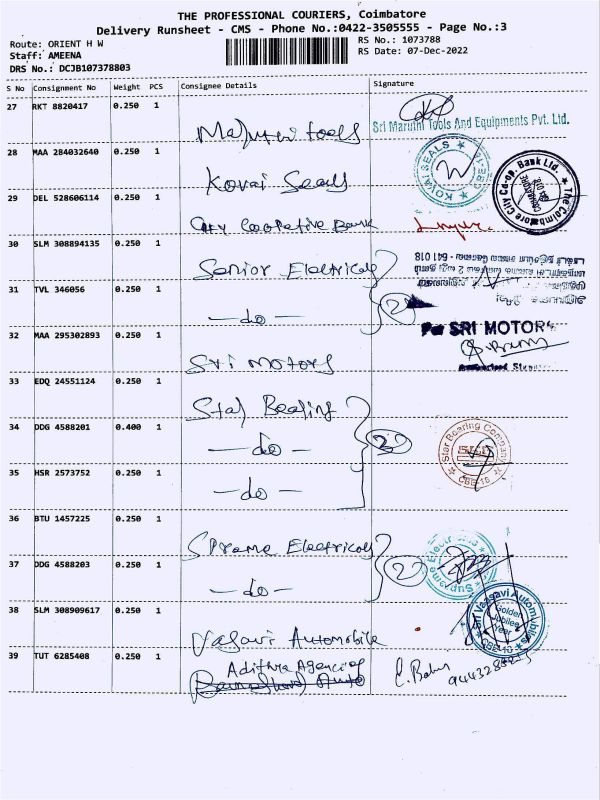 THE PROFESSIONAL COURIERS, Coimbatore
Delivery Runsheet - CMS - Phone No.:0422-3505555 - Page No.:3
Route: ORIENT H W
RS No.: 1073788
Staff: AMEENA
RS Date: 07-Dec-2022
DRS No.: DCJB107378803
S No Consignment No Weight PCS Consignee Details Signature
27 RKT 8820417 0.250 1
Maruthi tools
Sri Maruthi Tools And Equipments Pvt. Ltd.
28 MAA 284032640 0.250 1
Kovai Seals
KOVAI SEALS
The Coimbatore City Co-op. Bank Ltd.
29 DEL 528606114 0.250 1
City Cooperative Bank
30 SLM 308894135 0.250 1
Senior Electricals
641 018
31 TVL 346056 0.250 1
-do-
2
32 MAA 295302893 0.250 1
Sri Motors
For SRI MOTORS
33 EDQ 24551124 0.250 1
Star Bearing
34 DDG 4588201 0.400 1
-do-
Star Bearing Company
CBE-18
35 HSR 2573752 0.250 1
-do-
36 BTU 1457225 0.250 1
Supreme Electricals
37 DDG 4588203 0.250 1
-do-
2
38 SLM 308909617 0.250 1
Vasavi Automobile
Sri Vasavi Automobiles
Golden Jubilee Year
39 TUT 6285408 0.250 1
Adithya Agencies
C. Babu